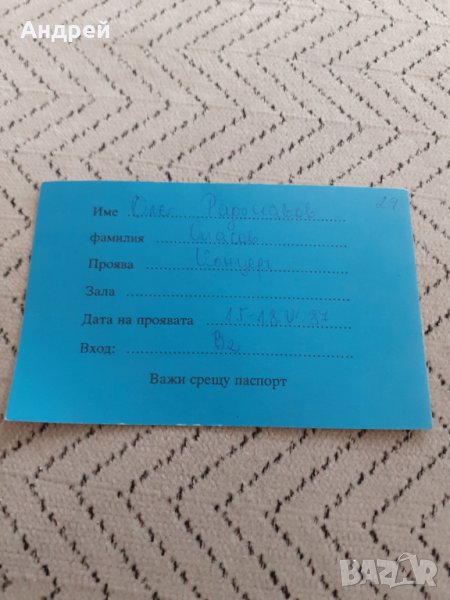 Андрей
29
Име Олег Радославов
фамилия Спасов
Проява Концерт
Зала
Дата на проявата 15-18 VI 87
Вход: В2
Важи срещу паспорт
BAZAR